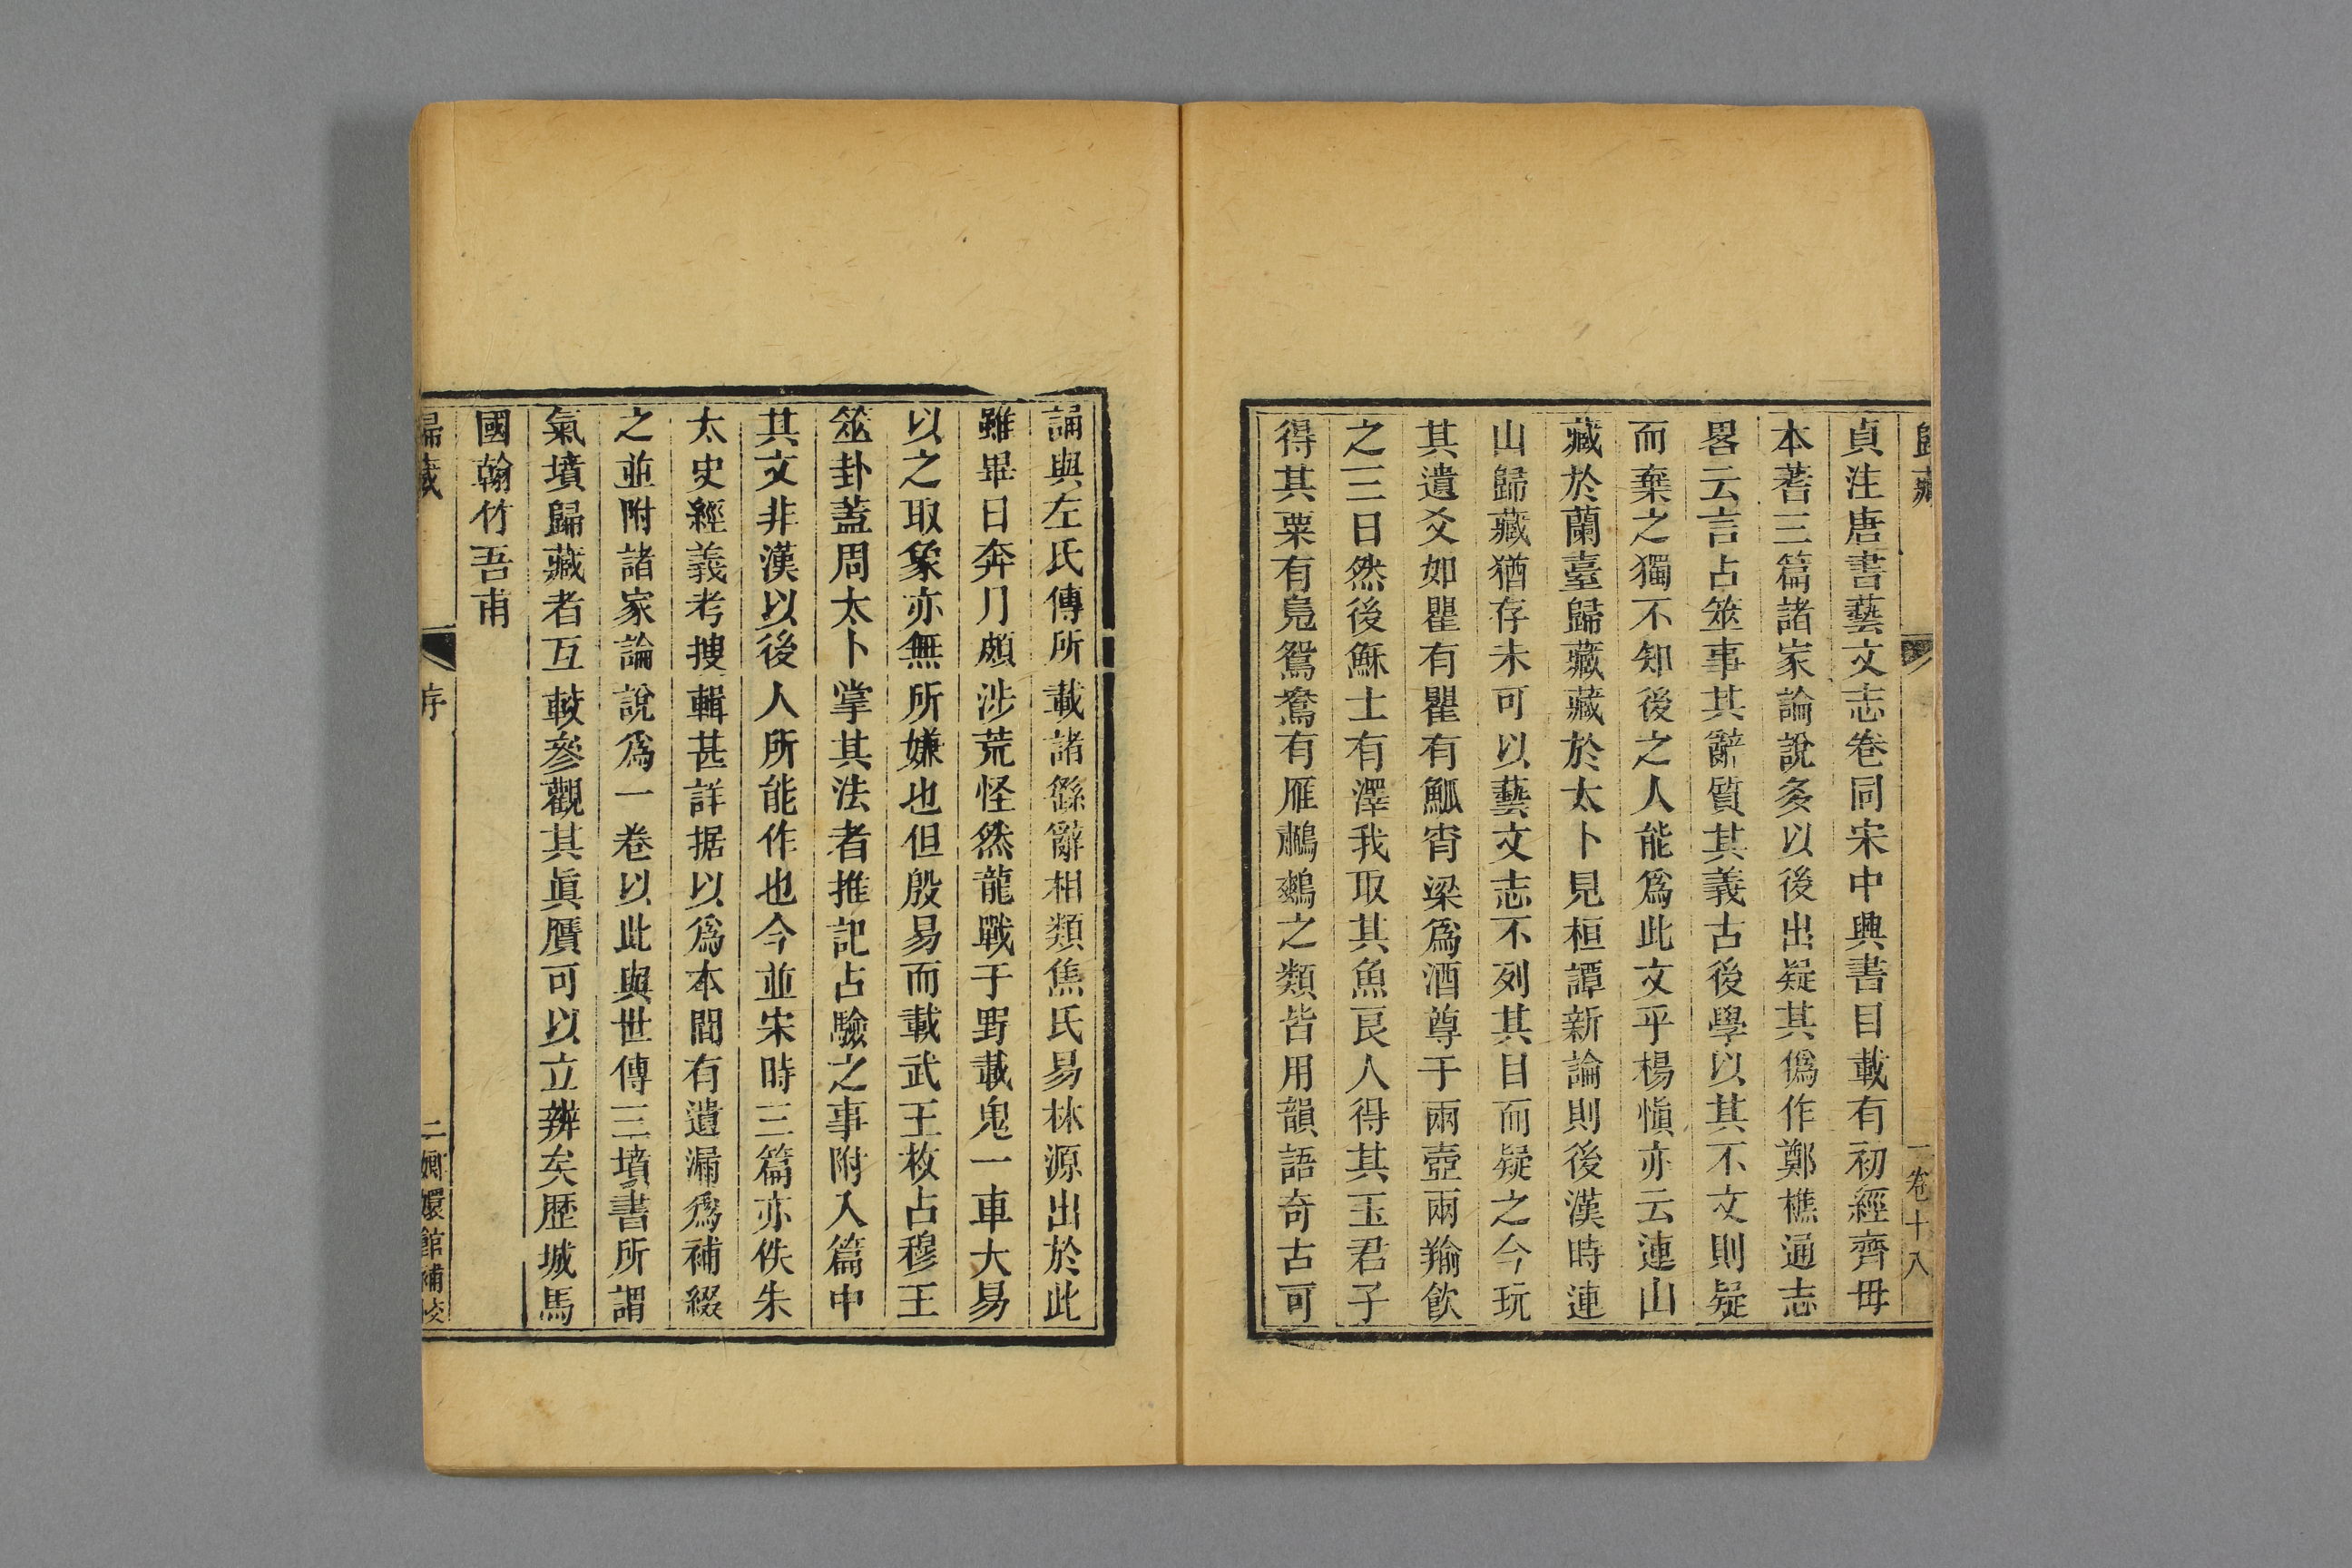 歸藏 一 卷十八
貞注唐書藝文志卷同宋中興書目載有初經齊毋
本蓍三篇諸家論說多以後出疑其僞作鄭樵通志
畧云言占筮事其辭質其義古後學以其不文則疑
而棄之獨不知後之人能爲此文乎楊愼亦云連山
藏於蘭臺歸藏藏於太卜見桓譚新論則後漢時連
山歸藏猶存未可以藝文志不列其目而疑之今玩
其遺爻如瞿有瞿有觚宵梁爲酒尊于兩壺兩羭飮
之三日然後穌士有澤我取其魚良人得其玉君子
得其粟有鳧鴛鴦有雁鷫鷞之類皆用韻語奇古可
誦與左氏傳所載諸繇辭相類焦氏易林源出於此
雖畢日奔月頗涉荒怪然龍戰于野載鬼一車大易
以之取象亦無所嫌也但殷易而載武王枚占穆王
筮卦蓋周太卜掌其法者推記占驗之事附入篇中
其文非漢以後人所能作也今並宋時三篇亦佚朱
太史經義考搜輯甚詳据以爲本間有遺漏爲補綴
之並附諸家論說爲一卷以此與世傳三墳書所謂
氣墳歸藏者互較參觀其眞贋可以立辨矣歷城馬
國翰竹吾甫
歸藏 序 二 嫏嬛館補校